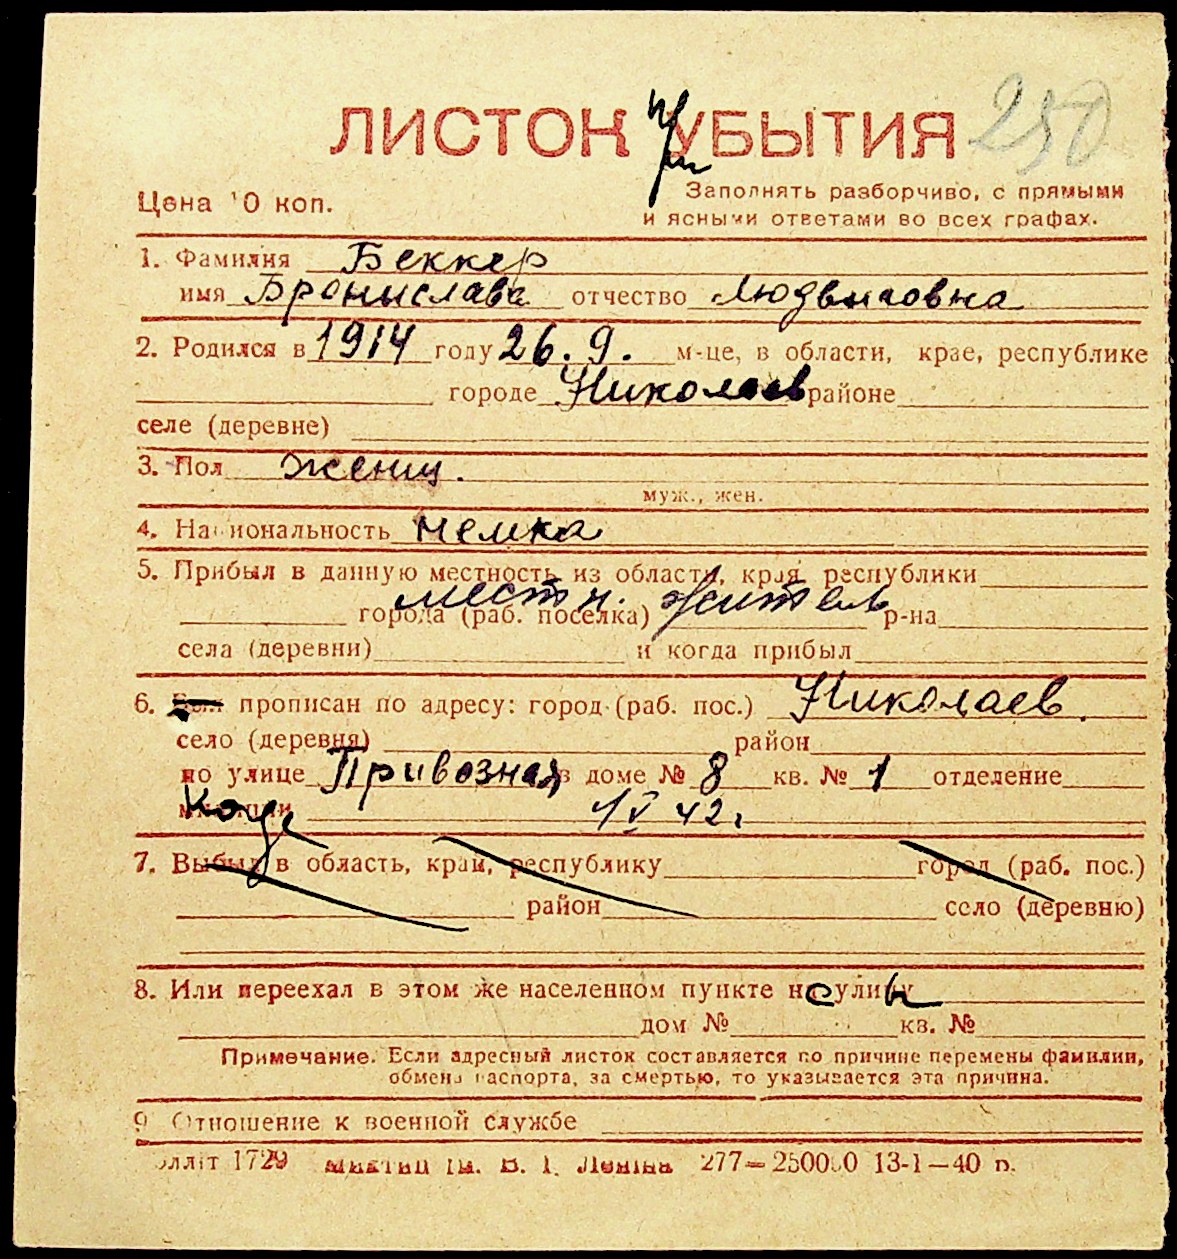 ЛИСТОК УБЫТИЯ 250
Цена 10 коп.
Заполнять разборчиво, с прямыми
и ясными ответами во всех графах.
1. Фамилия Беккер
имя Бронислава отчество Людвиговна
2. Родился в 1914 году 26.9. м-це, в области, крае, республике
городе Николаев районе
селе (деревне)
3. Пол женщ.
муж., жен.
4. Национальность немка
5. Прибыл в данную местность из области, края, республики
местн. житель
города (раб. поселка) р-на
села (деревни) и когда прибыл
6. прописан по адресу: город (раб. пос.) Николаев.
село (деревня) район
по улице Привозная в доме № 8 кв. № 1 отделение
милиции 1 V 42 г.
7. Выбыл в область, край, республику город (раб. пос.)
район село (деревню)
8. Или переехал в этом же населенном пункте на улицу
дом № кв. №
Примечание. Если адресный листок составляется по причине перемены фамилии,
обмена паспорта, за смертью, то указывается эта причина.
9 Отношение к военной службе
1729 Ім. В. І. Леніна 277—250000 13-1—40 р.